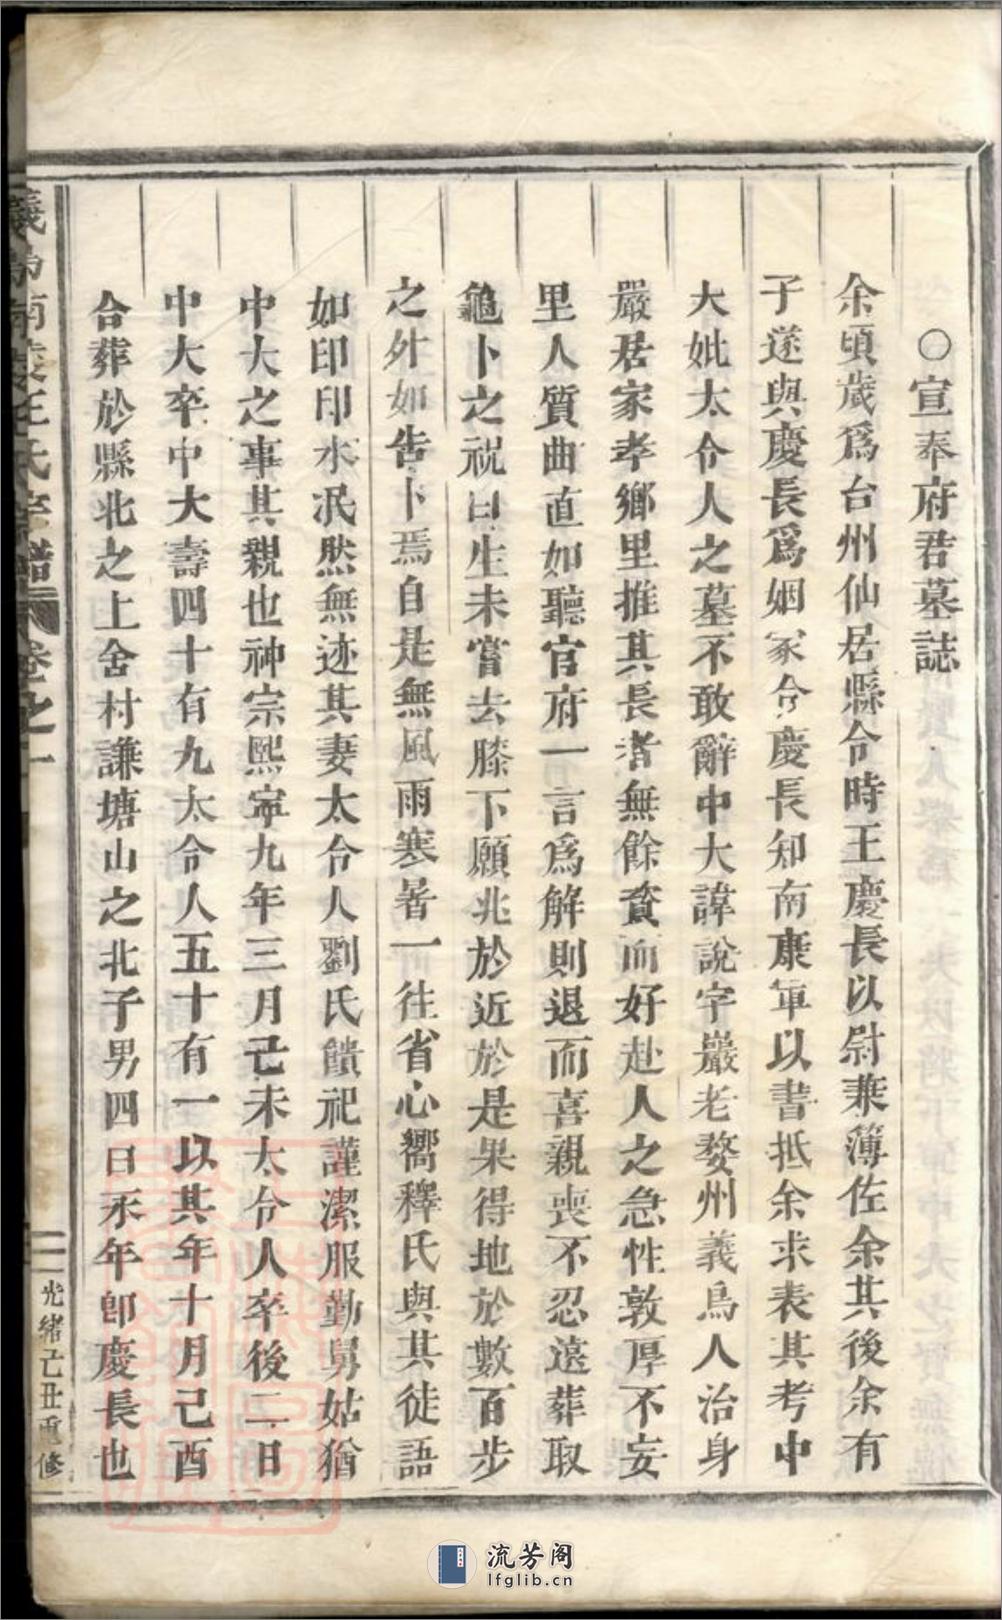 ○宣奉府君墓誌
余頃歲爲台州仙居縣令時王慶長以尉兼簿佐余其後余有
子遂與慶長爲姻家今慶長知南康軍以書抵余求表其考中
大妣太令人之墓不敢辭中大諱說字巖老婺州義烏人治身
嚴居家孝鄉里推其長者無餘賮而好赴人之急性敦厚不妄
里人質曲直如聽官府一言爲解則退而喜親喪不忍遠葬取
龜卜之祝曰生未嘗去膝下願兆於近於是果得地於數百步
之外如告卜焉自是無風雨寒暑一往省心嚮釋氏與其徒語
如印印水泯然無迹其妻太令人劉氏饋祀謹潔服勤舅姑猶
中大之事其親也神宗熙寧九年三月己未太令人卒後二日
中大卒中大壽四十有九太令人五十有一以其年十月己酉
合葬於縣北之上舍村謙塘山之北子男四曰永年卽慶長也
義烏南陵王氏宗譜 卷之一
一 光緒己丑重修
流芳阁
lfglib.cn